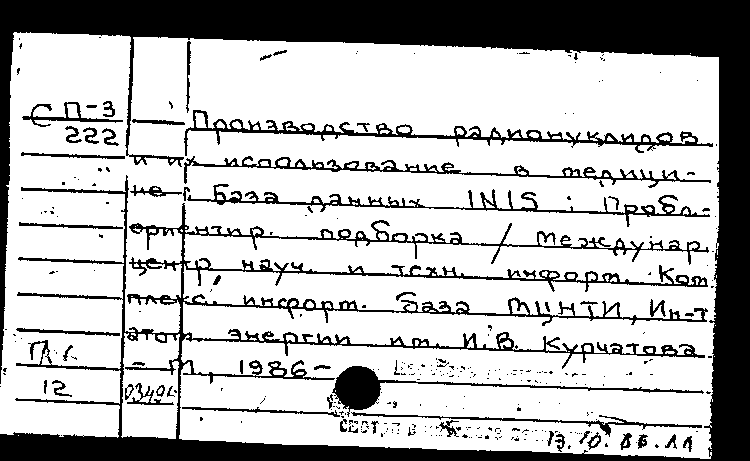 С П-3
222
Производство радионуклидов
и их использование в медици-
не : База данных INIS : Пробл.-
ориентир. подборка / Междунар.
центр науч. и техн. информ. Ком
плекс. информ. база МЦНТИ, Ин-т
атом. энергии им. И.В. Курчатова
- М., 1986 -
12
13.10.86.